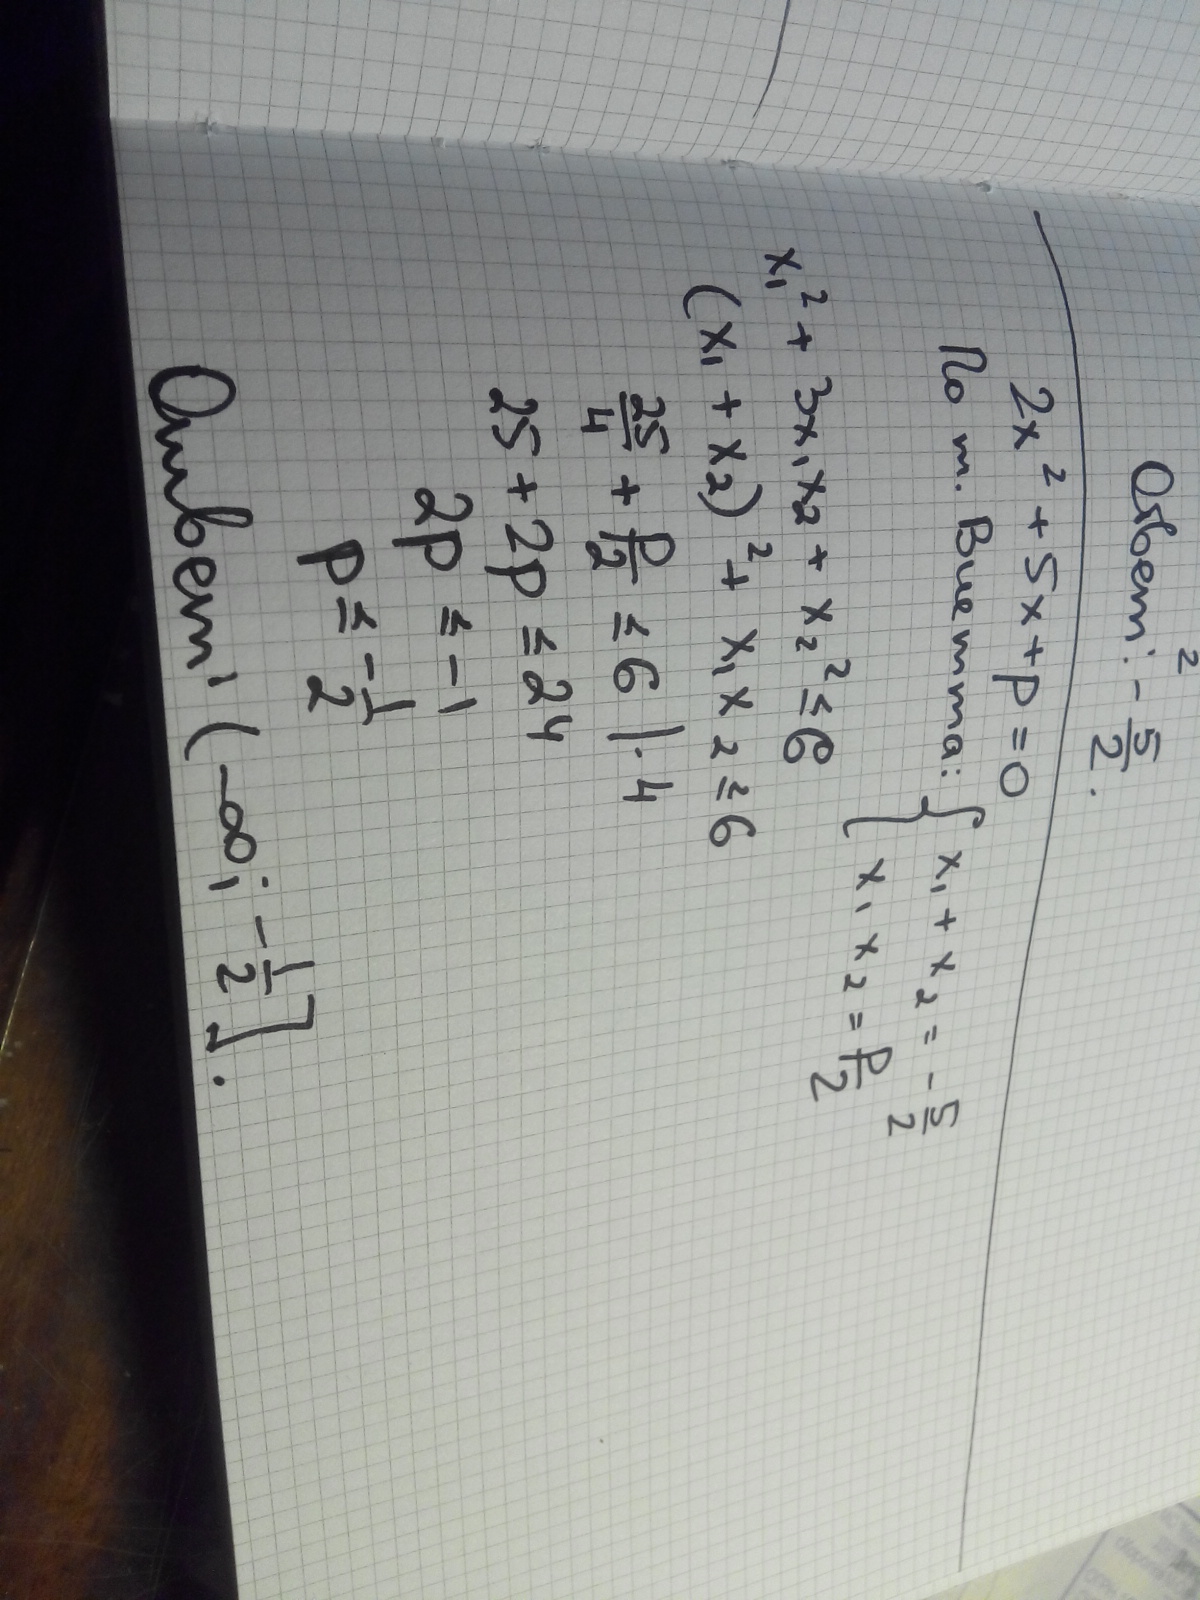 2
Ответ: -5/2.
2x² + 5x + p = 0
По т. Виетта: { x₁ + x₂ = -5/2
x₁x₂ = p/2
x₁² + 3x₁x₂ + x₂² ≤ 6
(x₁ + x₂)² + x₁x₂ ≤ 6
25/4 + p/2 ≤ 6 |·4
25 + 2p ≤ 24
2p ≤ -1
p ≤ -1/2
Ответ: (-∞; -1/2].